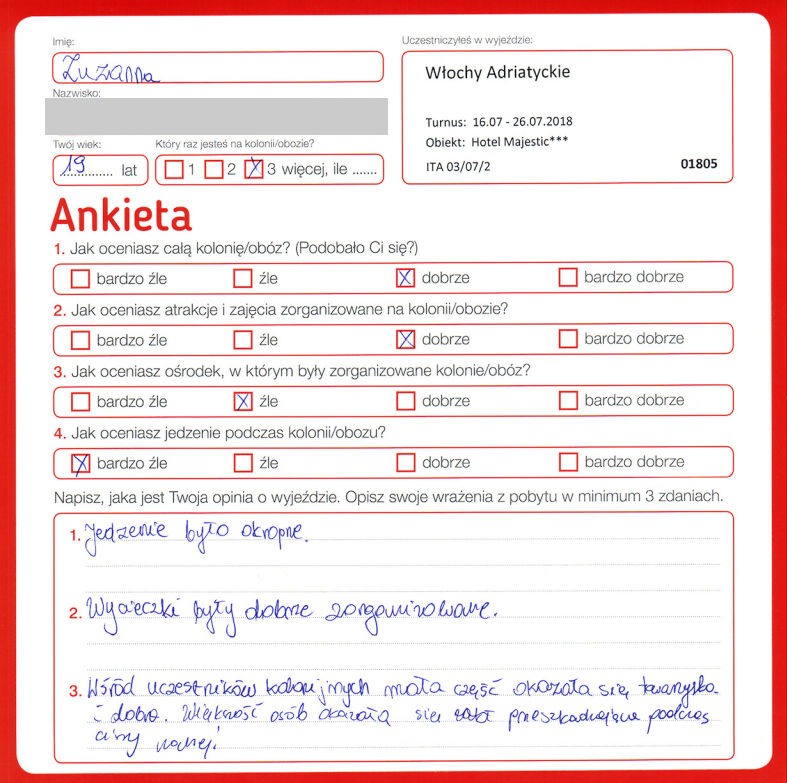 Imię:
Zuzanna
Nazwisko:
Twój wiek:
19 lat
Który raz jesteś na kolonii/obozie?
1 2 3 więcej, ile .......
Uczestniczyłeś w wyjeździe:
Włochy Adriatyckie
Turnus: 16.07 - 26.07.2018
Obiekt: Hotel Majestic***
ITA 03/07/2 01805
Ankieta
1. Jak oceniasz całą kolonię/obóz? (Podobało Ci się?)
bardzo źle źle dobrze bardzo dobrze
2. Jak oceniasz atrakcje i zajęcia zorganizowane na kolonii/obozie?
bardzo źle źle dobrze bardzo dobrze
3. Jak oceniasz ośrodek, w którym były zorganizowane kolonie/obóz?
bardzo źle źle dobrze bardzo dobrze
4. Jak oceniasz jedzenie podczas kolonii/obozu?
bardzo źle źle dobrze bardzo dobrze
Napisz, jaka jest Twoja opinia o wyjeździe. Opisz swoje wrażenia z pobytu w minimum 3 zdaniach.
1. Jedzenie było okropne.
2. Wycieczki były dobrze zorganizowane.
3. Wśród uczestników kolonijnych mała część okazała się towarzyska
i dobra. Większość osób okazała się podczas
ciszy nocnej!